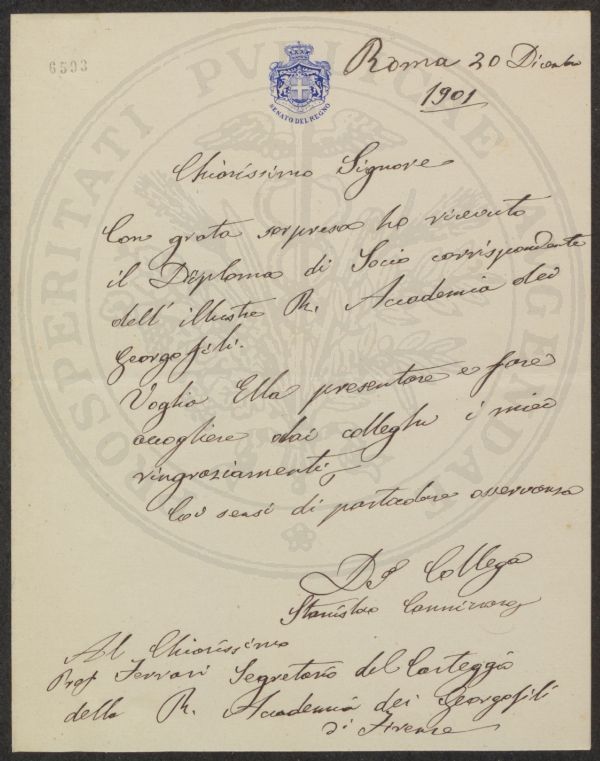 6593
Roma 20 Dicembre
1901
SENATO DEL REGNO
PROSPERITATI PVBLICAE AVGENDAE
Chiarissimo Signore
Con grata sorpresa ho ricevuto
il Diploma di Socio corrispondente
dell' illustre R. Accademia dei
Georgofili.
Voglia Ella presentare e fare
accogliere dai colleghi i miei
ringraziamenti
Coi sensi di particolare osservanza
Collega
Stanislao Cannizzaro
Al Chiarissimo
Prof Ferrari Segretario del Carteggio
della R. Accademia dei Georgofili
di Firenze